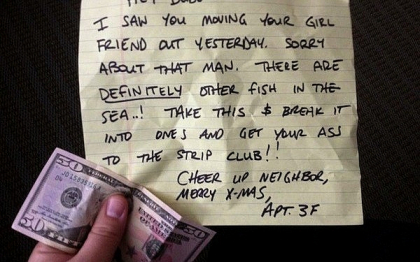 I SAW YOU MOVING YOUR GIRL
FRIEND OUT YESTERDAY. SORRY
ABOUT THAT MAN. THERE ARE
DEFINITELY OTHER FISH IN THE
SEA..! TAKE THIS $ BREAK IT
INTO ONES AND GET YOUR ASS
TO THE STRIP CLUB!!
CHEER UP NEIGHBOR,
MERRY X-MAS,
APT. 3F
50
50